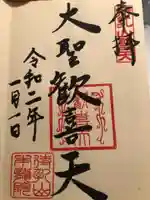 奉拝
大聖歓喜天
令和二年
一月一日